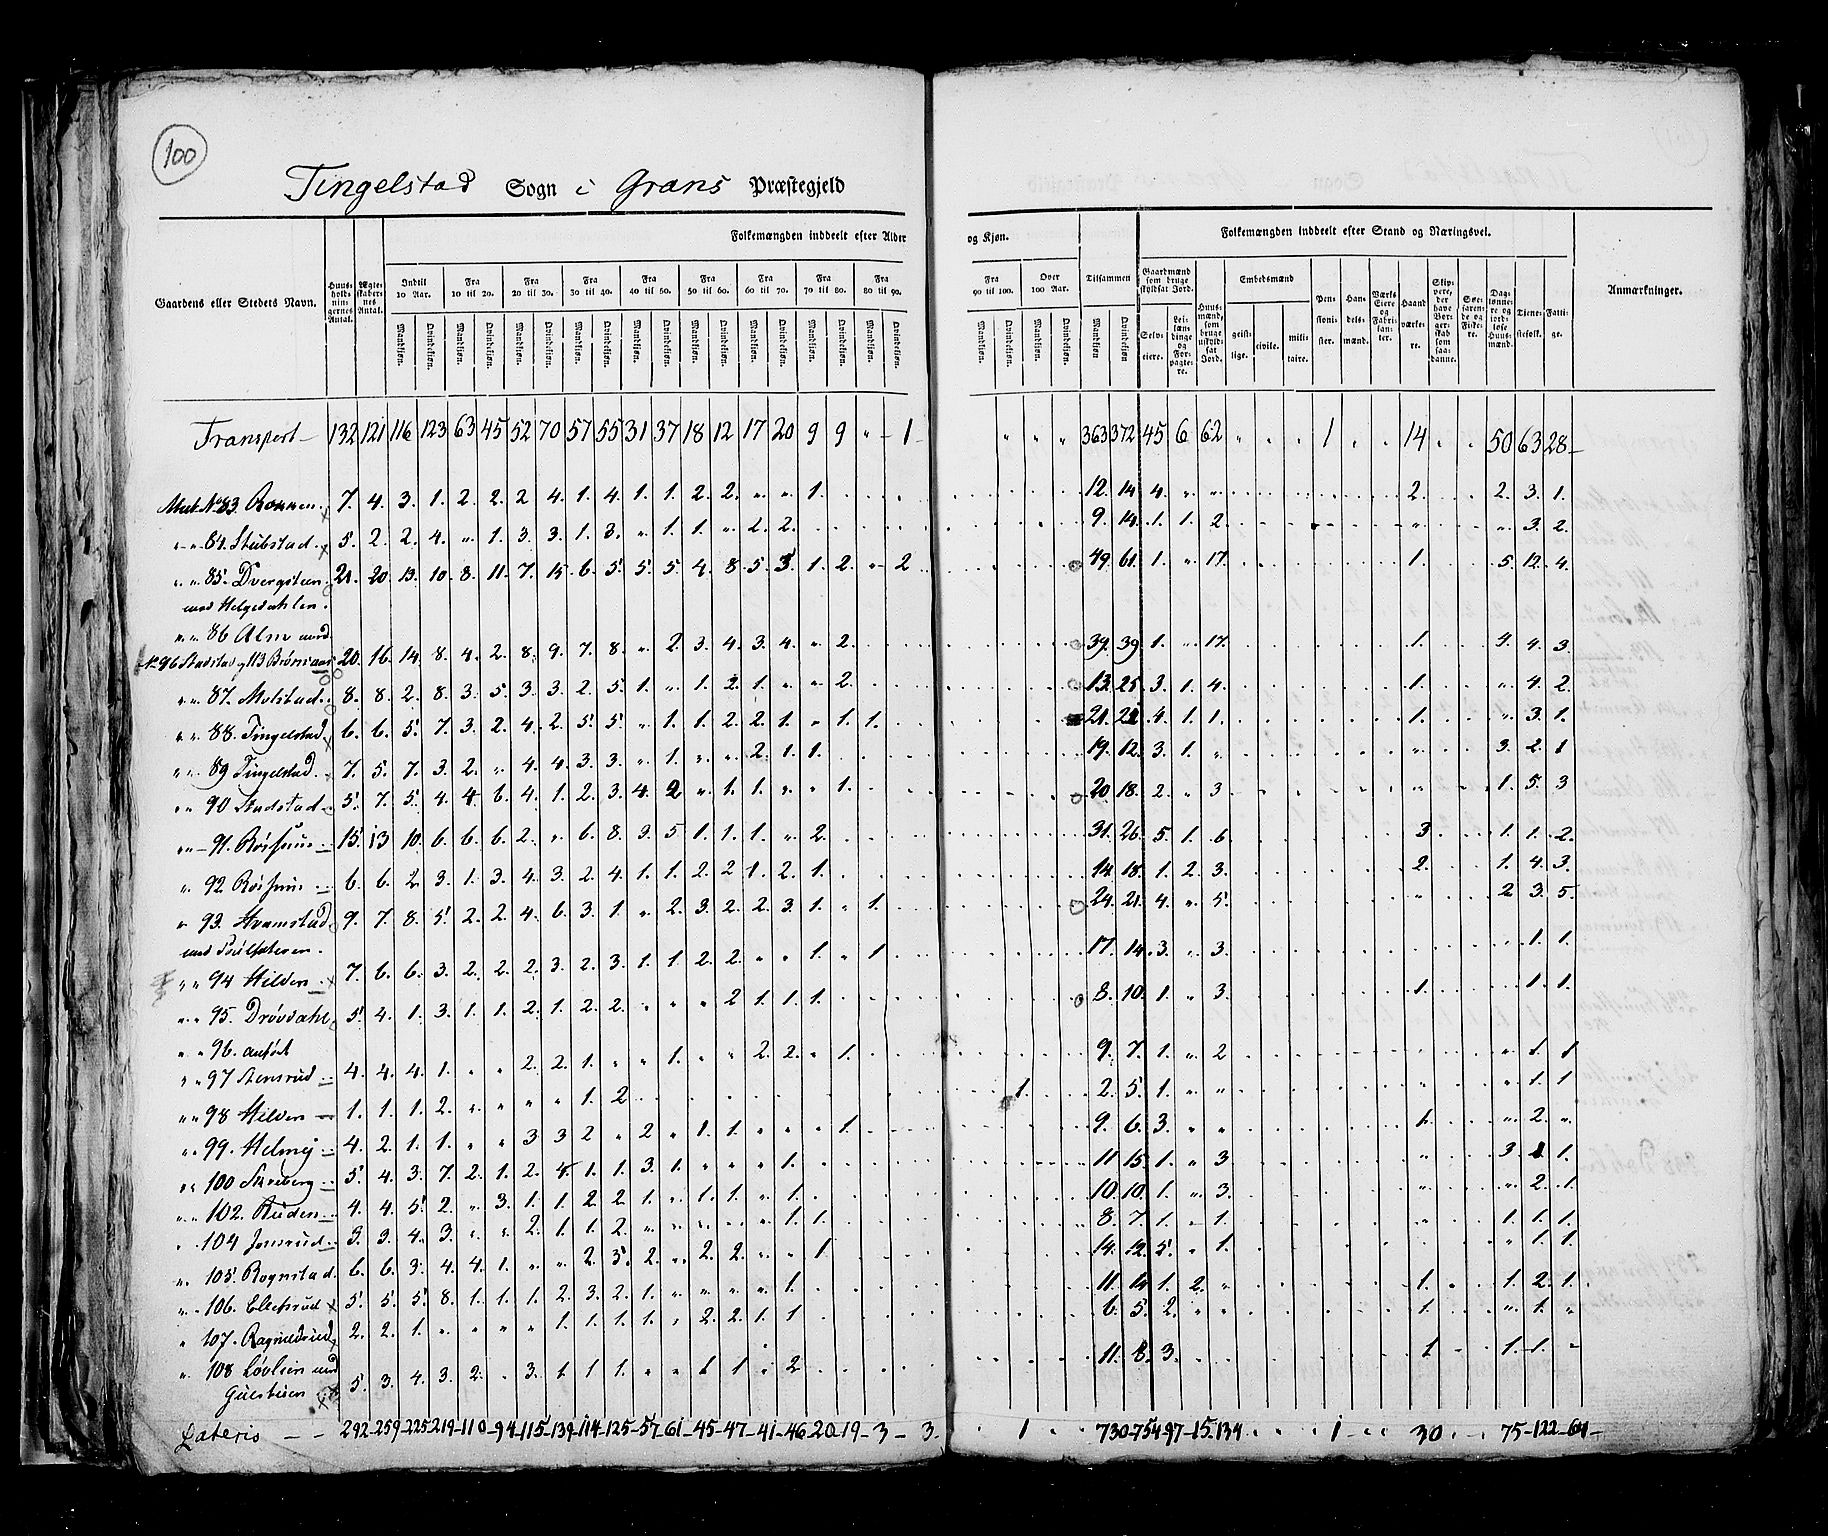 100
Tingelstad Sogn i Grans Præstegjeld
Gaardens eller Stedets Navn. Huusholdningernes Antal. Ægteskabernes Antal. Folkemængden inddeelt efter Alder og Kjøn. Folkemængden inddeelt efter Stand og Næringsvei. Anmærkninger.
Indtil 10 Aar. Fra 10 til 20. Fra 20 til 30. Fra 30 til 40. Fra 40 til 50. Fra 50 til 60. Fra 60 til 70. Fra 70 til 80. Fra 80 til 90. Fra 90 til 100. Over 100 Aar. Tilsammen
Mandkjøn. Qvindekjøn.
Gaardmænd som bruge skyldsat Jord. Selveiere. Leilændinge og Forpagtere. Huusmænd, som bruge uskyldsat Jord. Embedsmænd geistlige. civile. militaire. Pensionister. Handelsmænd. Værks Eiere og Fabrikanter. Haandværkere. Skippere, der have Borgerskab som saadanne. Søefarende og Fiskere. Daglønnere og jordløse Huusmænd. Tjenestefolk. Fattige.
Transport 132 121 116 123 63 45 52 70 57 55 31 37 18 12 17 20 9 9 " 1 " " " " 363 372 45 6 62 " . . 1 . . 14 . . 50 63 28
83. 7. 4. 3. 1. 2. 2. 2 4. 1. 4. 1. 1. 2. 2. " " 1. 12. 14. 4. " " 2. 2. 3. 1.
84. Stubstad 5. 2. 2. 4. " 1. 3. 3. 1. 3. " 1. 1. " 2. 2. 9. 14. 1. 1. 2. " " 3. 2.
85. Dvergsteen 21. 20. 13. 10. 8. 11. 7. 15. 6. 5. 5. 5. 4. 8. 5. 3. 1. 2. " 2 49. 61. 1. " 17. 1. 5. 12. 4.
med Helgedahlen.
86 Alm med
No 96 Stadstad og 113 20. 16. 14. 8. 4. 2. 8. 9. 7. 8. " 2. 3. 4. 3. 4. " 2. 39. 39. 1. " 17. 1. 4. 3.
87. Molstad 8. 8. 2. 8. 3. 5. 3. 3. 2. 5. 1. " 1. 2. 1. " " 2. 13. 25. 3. 1. 4. 1. " 4. 2.
88. Tingelstad 6. 6. 5. 7. 3. 2. 4. 2. 5. 5. " 1. 1. 2. 2. 1. " 1. 1. 21. 4. 1. 1. 1. " 3. 1.
89 Tingelstad 7. 5. 7. 3. 2. " 4. 4. 3. 3. " 1. " " 2. 1. 1. 19. 12. 3. 1. " " 3. 2. 1
90 Stadstad 5. 7. 5. 4. 4. 6. 4. 1. 2. 3. 4. 2 " 1. 1. " " 1. 20. 18. 2. " 3 1. 5. 3
91. 15. 13 10. 6. 6. 6. 2. " 6. 8. 3. 5. 1. 1. 1. " 2. 31. 26. 5. 1. 6. 3. 1. 1. 2.
92 6. 6. 2. 3. 1. 3. 4. 3. 2. 4. 1. 1. 2. 2 1. 2. 1. 14. 18. 1. 2. 3. 2. 1. 4. 3.
93. Hvamstad 9. 7. 8. 5. 2. 2. 4. 6. 3. 1. " 2. 3. 2. 2. 3. 1. " 1. 24. 21. 4. " 5. " 2 3. 5.
94 Hilden 7. 6. 6. 3. 2. 2. 2. 3. 2. 3. 1. 1. 2. 2. " " 1. " 1 17. 14. 3. " 3. 1. 1.
95. Drövdahl 5. 4. 1. 3. 1. 1. 2. 1. 2. 2. " " " 2 1. 1. 1. 8. 10. 1. " 3. 1. 1. 1.
96. anført
97 4. 4. 4. 1. " " 2. 2. 1. " " 1. " " 2. 2. " 1. 9. 7. 1. " 2 " 1. 1
98 Hilden 1. 1. 1. 2. " " " " 1. 2 1. 2. 5. 1. " " " 1. 1
99. Helmej 4. 2. 1. 1. " " 3. 3. 2 " 2 " 1. 1. " " " 1. 9. 6. 3. " " 1. " 2. "
100 5. 4. 3. 7. 2. 1. 2. 4. 1. 1. 3. 1. " " " 1. 11. 15. 1. " 3 " 3 1.
102. Ruden 4. 4. 5. 2. " 3. 1. 1. 2. 2. 1. " 1. 1. " 1. 10. 10. 1. " 3. " " 2. 1.
104 Jonsrud 3. 3. 4. 3. " " 2. 1. 1. 2. " " " " 1. 1. 8. 7. 1. " 1. 1. 1. 1.
105. Rognstad. 6. 6. 3. 4. 4. 1. " " 2. 5. 2. " 2. 2. " " 1 14. 12. 5. " 1. " 1. 1.
106. 5. 5. 5. 8. 1. 1. 1. 2. 3. 2. 1. " " " " 1. 11. 14. 1. 2. " 1. 1. 2. 1.
107. Ragnildrud 2. 2. 1. " " " " 1. 1. 1. 1. " 2. 2. 1. 1. 6. 5. 2. " " 1. " 1. "
108 Lövlien med 5. 3. 4. 3. 2. " 3. 1. 1. 1. " " 1 1. " 2 11. 8. 3. 1 1. 1. "
Lateris 292 259 225 219 110 94 115 139 114 125 57 61 45 47 41 46 20 19 3 3 1 730 754 97 15 134 1 30 75 122 64